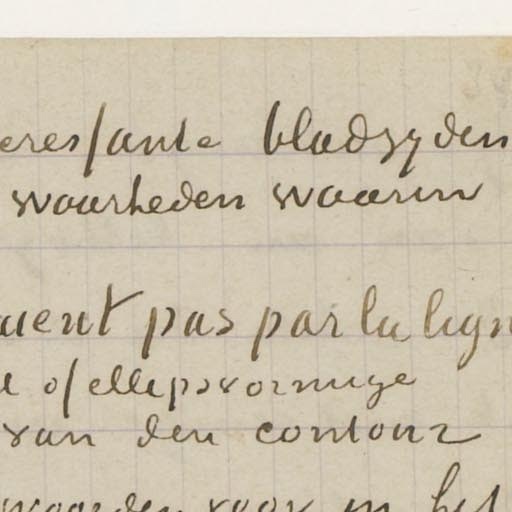 eressante bladzyden
waarheden waarin
uent pas par la lign
e of ellipsvormige
van den contour
waarden voor in het